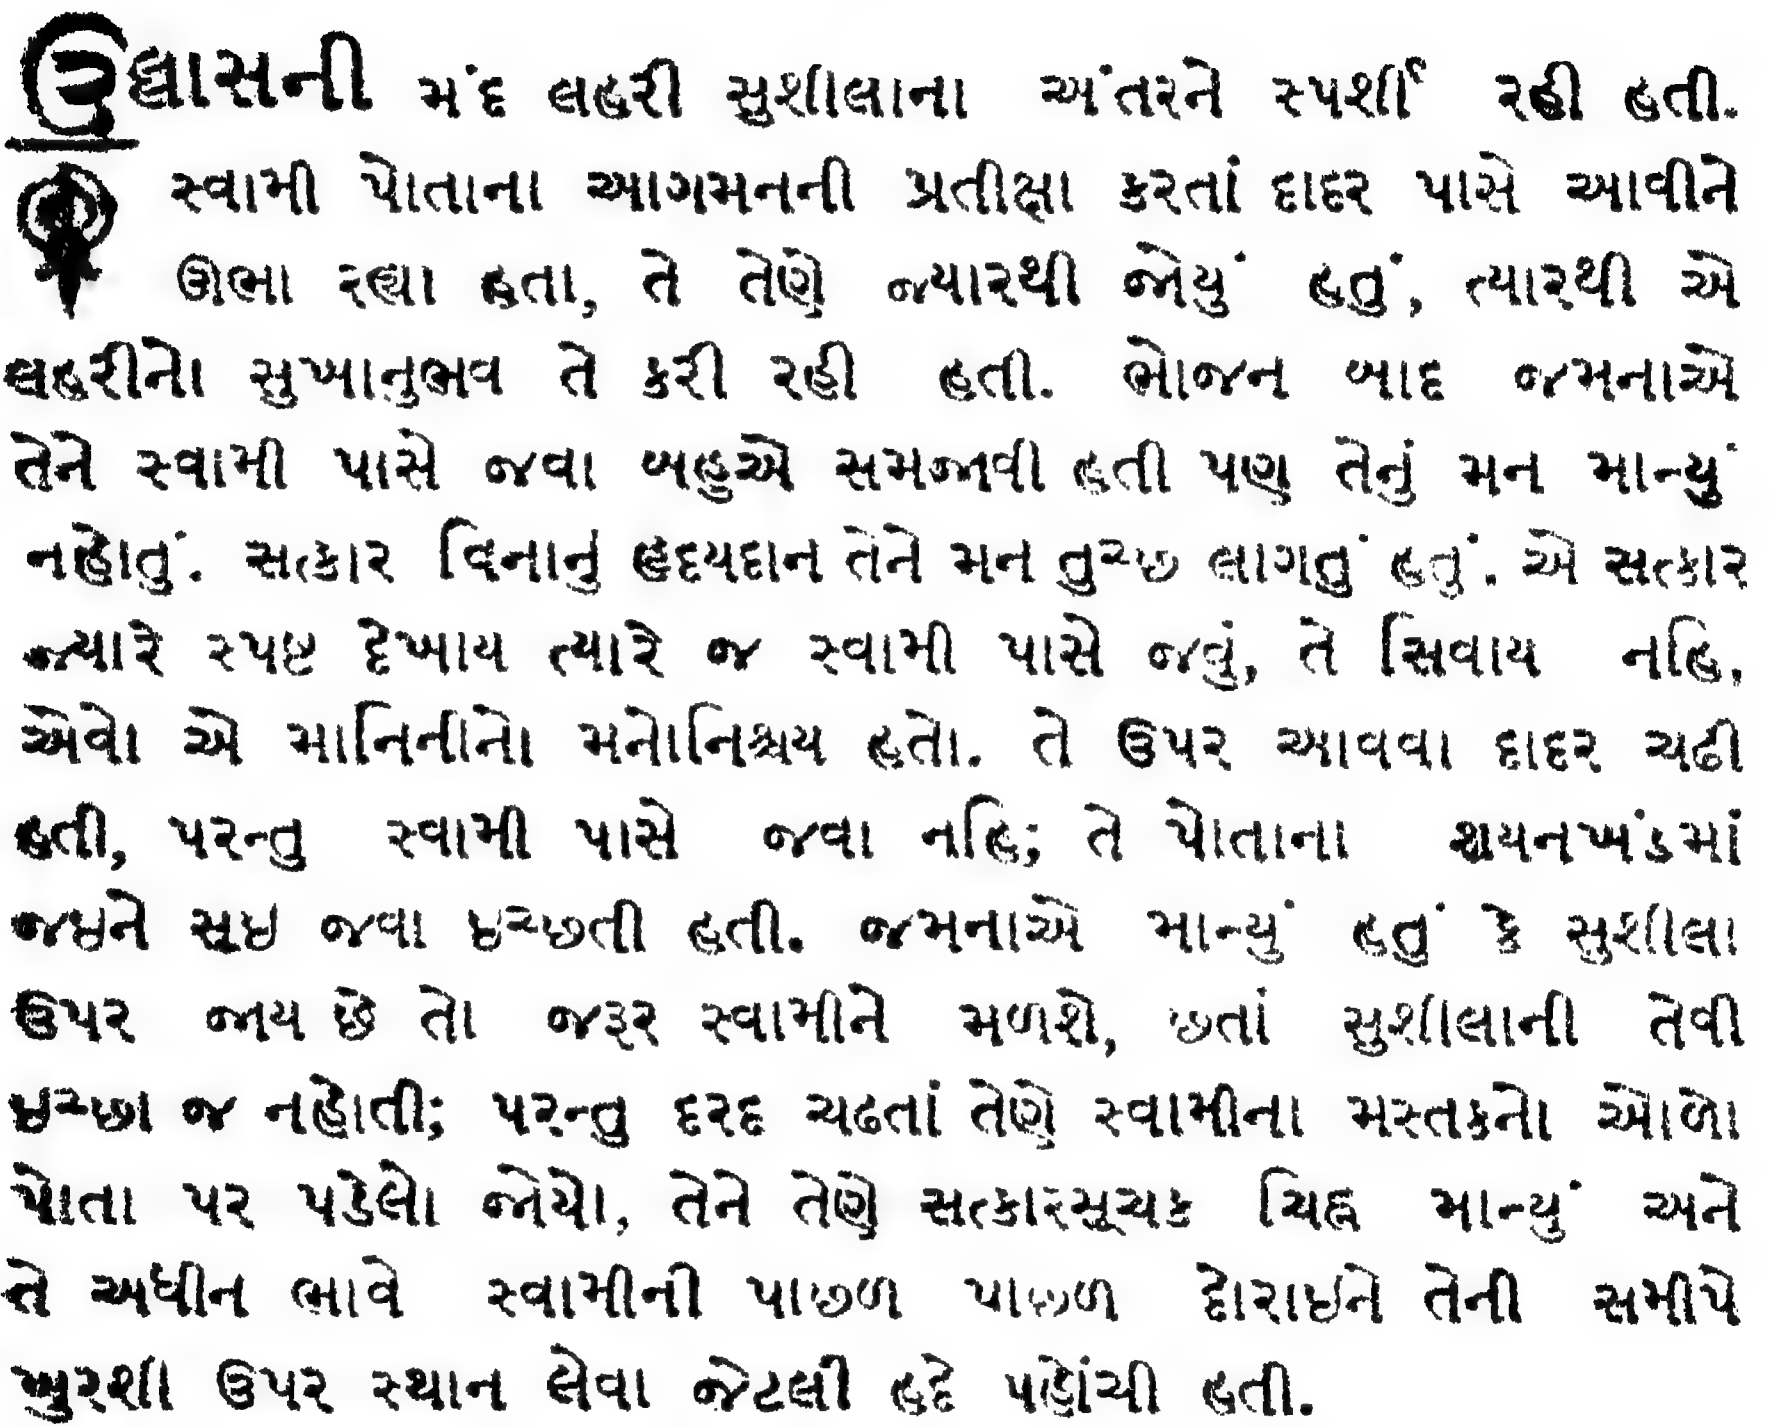 ઉલ્લાસની મંદ લહરી સુશીલાના અંતરને સ્પર્શી રહી હતી.
સ્વામી પોતાના આગમનની પ્રતીક્ષા કરતાં દાદર પાસે આવીને
ઊભા રહ્યા હતા, તે તેણે જ્યારથી જોયું હતું, ત્યારથી એ
લહરીનો સુખાનુભવ તે કરી રહી હતી. ભોજન બાદ જમનાએ
તેને સ્વામી પાસે જવા બહુએ સમજાવી હતી પણ તેનું મન માન્યું
નહોતું. સત્કાર વિનાનું હૃદયદાન તેને મન તુચ્છ લાગતું હતું. એ સત્કાર
જ્યારે સ્પષ્ટ દેખાય ત્યારે જ સ્વામી પાસે જવું, તે સિવાય નહિ.
એવો એ માનિનીનો મનોનિશ્ચય હતો. તે ઉપર આવવા દાદર ચઢી
હતી, પરન્તુ સ્વામી પાસે જવા નહિ; તે પોતાના શયનખંડમાં
જઇને સૂઇ જવા ઇચ્છતી હતી. જમનાએ માન્યું હતું કે સુશીલા
ઉપર જાય છે તો જરૂર સ્વામીને મળશે, છતાં સુશીલાની તેવી
ઇચ્છા જ નહોતી; પરન્તુ દરદ ચઢતાં તેણે સ્વામીના મસ્તકનો ઓળો
પોતા પર પડેલો જોયો, તેને તેણે સત્કારસૂચક ચિહ્ન માન્યું અને
તે અધીન ભાવે સ્વામીની પાછળ પાછળ દોરાઇને તેની સમીપે
ખુરશી ઉપર સ્થાન લેવા જેટલી હદે પહોંચી હતી.